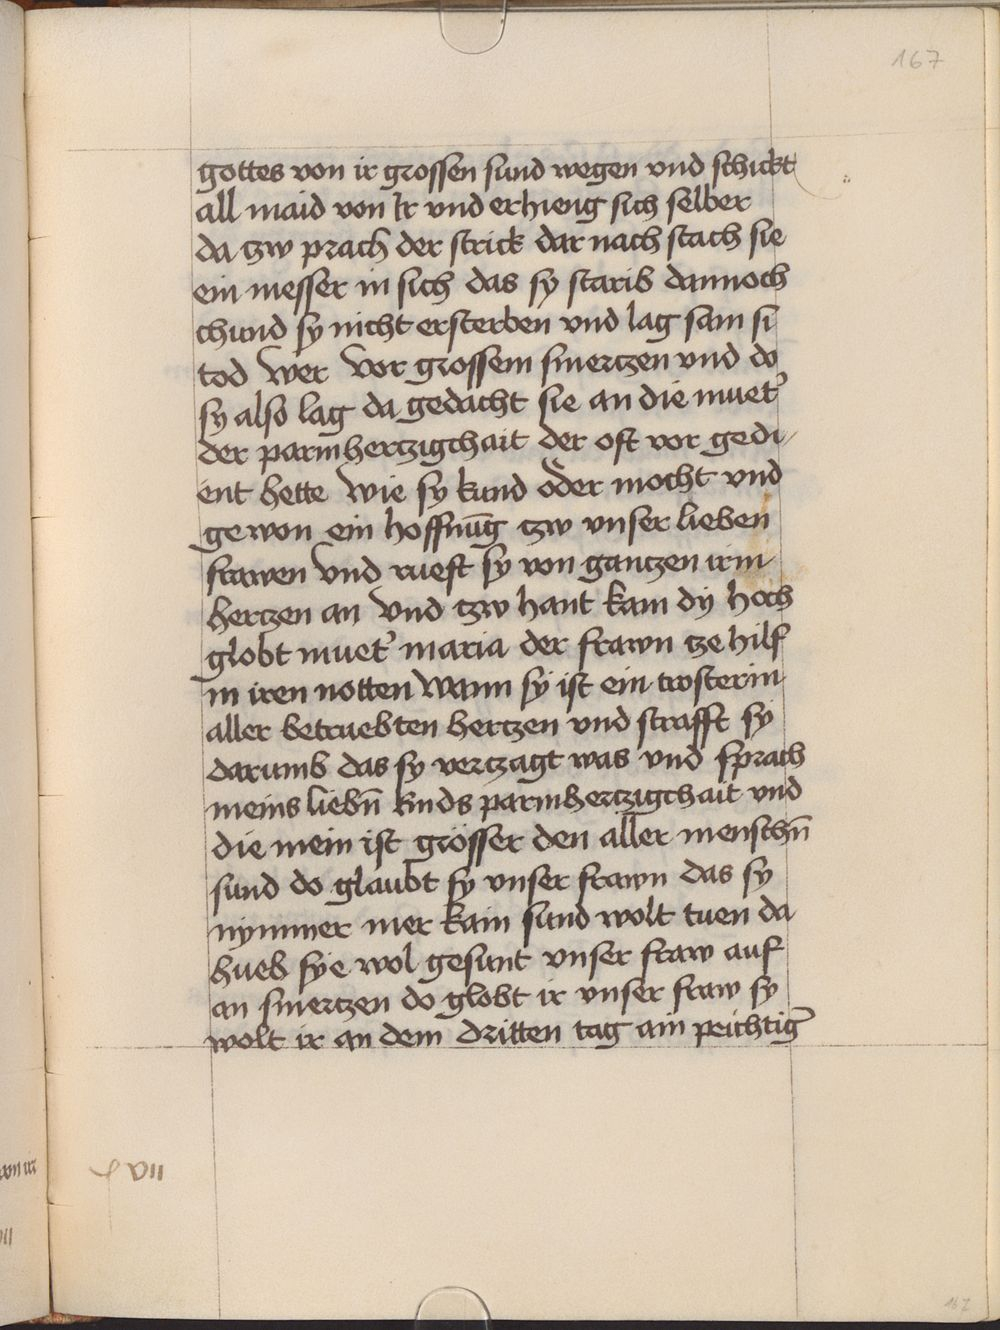 167
gottes von ir grossen sund wegen vnd schickt
all maid von ir vnd erhieng sich selber
da zw prach der strick dar nach stach sie
ein messer in sich das sy starib dannoch
chund sy nicht ersterben vnd lag sam si
tod wer vor grossem smertzen vnd do
sy also lag da gedacht sie an die muet̉
der parmhertzigchait der oft vor gedi
ent hette wie sy kund oder mocht vnd
gewon ein hoffnūg tzw vnser lieben
frawen vnd rueft sy von gantzen irm
hertzen an vnd tzw hant kam dÿ hoch
globt muet̉ maria der frawn ze hilf
in iren notten wann sÿ ist ein trosterin
aller betruebten hertzen vnd strafft sÿ
darumb das sy vertzagt was vnd sprach
meins liebn̄ kinds parmhertzigchait vnd
die mein ist grösser den aller menschn̄
sund do glaubt sy vnser frawn das sy
nymmer mer kain sund wolt tuen da
hueb sye wol gesunt vnser fraw auf
an smertzen do globt ir vnser fraw sy
wolt ir an dem dritten tag ain peichtig̉
VII
167